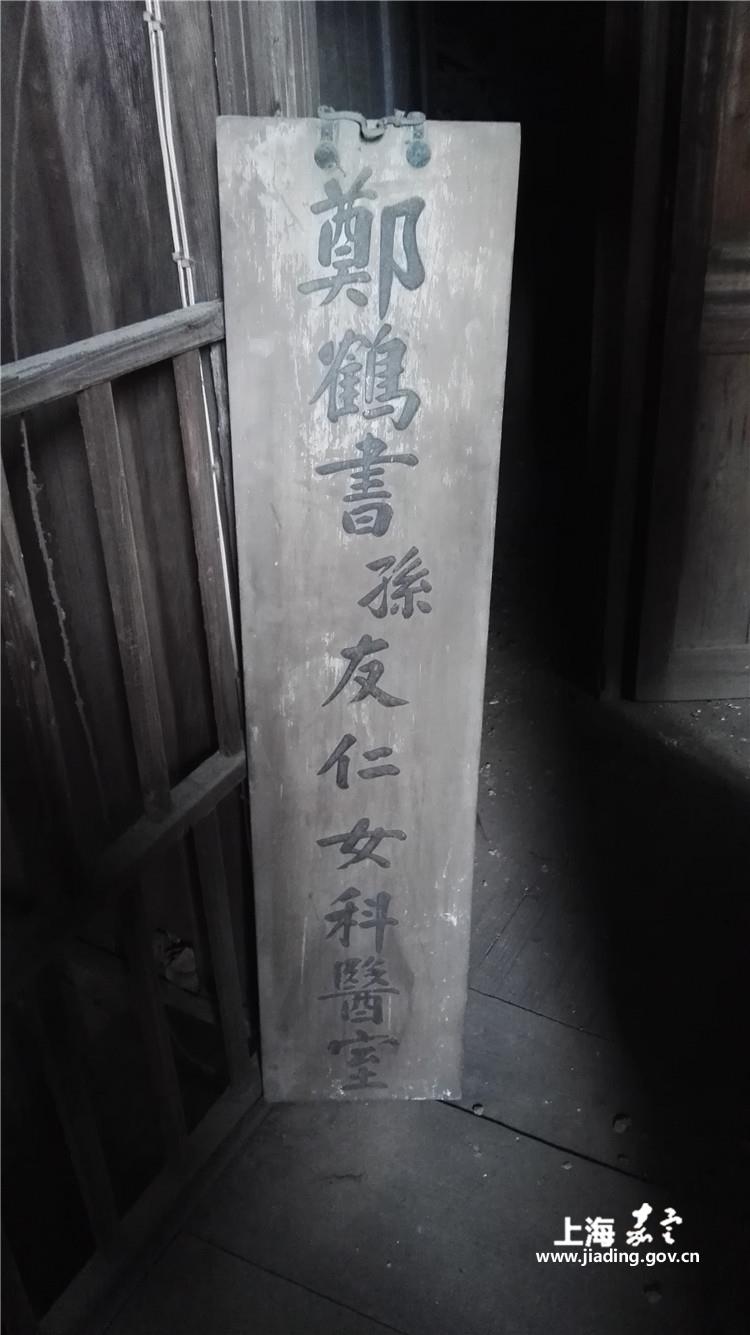 鄭鶴書孫友仁女科醫室
上海嘉定
www.jiading.gov.cn